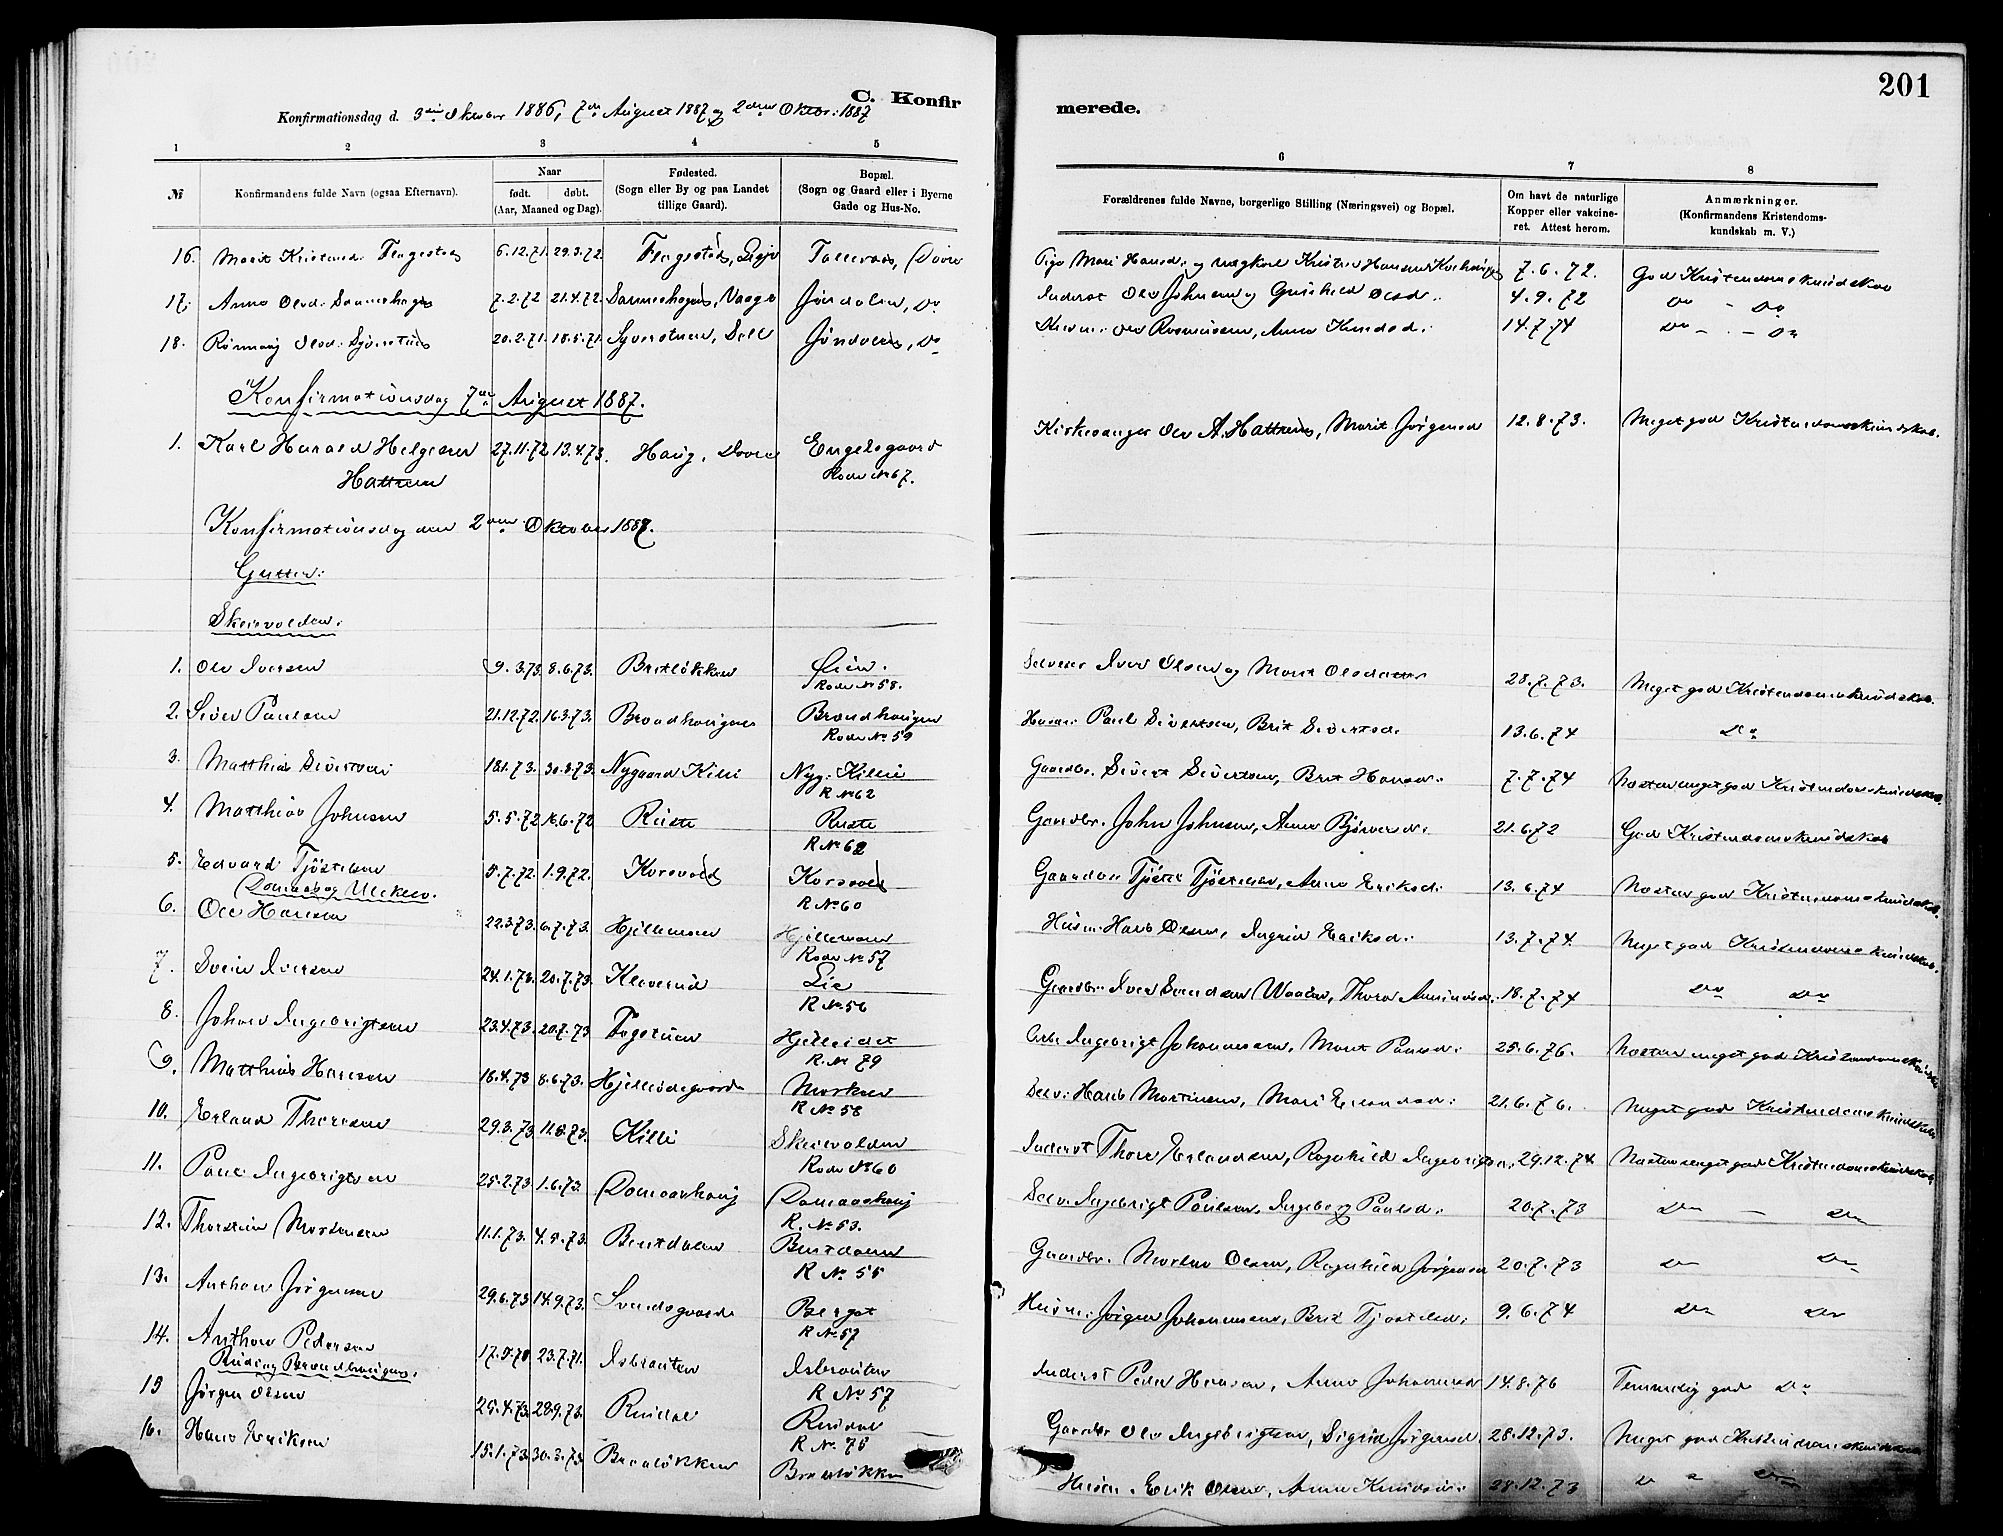 201
C. Konfir
merede.
Konfirmationsdag d. 3die Oktober 1886, 7de August 1887 og 2den Oktbr: 1887
1 2 3 4 5 6 7 8
№ Konfirmandens fulde Navn (ogsaa Efternavn). Naar født. døbt. (Aar, Maaned og Dag). Fødested. (Sogn eller By og paa Landet tillige Gaard). Bopæl. (Sogn og Gaard eller i Byerne Gade og Hus-No. Forældrenes fulde Navne, borgerlige Stilling (Næringsvei) og Bopæl. Om havt de naturlige Kopper eller vakcineret. Attest herom. Anmærkninger. (Konfirmandens Kristendomskundskab m. V.)
16. Marit Kristensd. 6.12.71. 29.3.72. Pige Mari Hansd: og Kristen Hansen 7.6.72. God Kristendomskundskab
17. Anna Olsd. 7.2.72 21.4.72. Vaage Jøndalen, Do Inderst Ole Johnsen og Gunhild Olsd: 4.9.72 Do - Do
18. Rønnaug Olsd: 20.2.71. 18.5.71. Sell Do Ole Rasmussen, Anne Knudsd: 14.7.74 Do - - Do
Konfirmationsdag 7de August 1887.
1. Karl Harald Helgesen 27.11.72 13.4.73. Haug, Dovre Engelsgaard Kirkesanger Ole A. Hattrem, Marit Jørgensd 12.8.73. Meget god Kristendomskundskab.
Hattrem Rode No 67.
Konfirmationsdag den 2den Oktober 1887.
Gutter:
Skeievolden:
1. Ole Iversen 9.3.73. 8.6.73. Bretløkken Lien. Iver Olsen og Marit Olsdatter 28.7.73. Meget god Kristendomskundskab.
Rode No 58.
2. Siver Paulsen 21.12.72. 16.3.73. Brandhaugen Brandhaugen Husm: Paul Sivertsen, Brit Sivertsd. 13.6.74 Do
Rode No 59
3. Matthias Sivertsen 18.1.73. 30.3.73. Nygaard Killi Nyg: Killi Gaardbr. Sivert Sivertsen, Brit Hansd: 7.7.74 Næsten meget god Kristendomskundskab.
R No 62
4. Matthias Johnsen 5.5.72 16.6.72 Ruste Ruste Gaardbr. John Johnsen, Anne Bjørnersd: 21.6.72 God Kristendomskundskab
R No 62
5. Edvard Tjøstelsen 5.7.72. 1.9.72. Korsvold Korsvold Gaardbr Tjøstel Tjøstelsen, Anne Eriksd: 13.6.74 Næsten god Kristendomskundskab.
R No 60
Domaas og Ulekleiv.
6. Ole Hansen 22.3.73. 6.7.73. Hjellemoen Hjellemoen Husm: Hans Olsen, Ingrid Eriksd: 13.7.74 Meget god Kristendomskundskab.
Rode No 57
7. Svein Iversen 24.1.73. 20.7.73. Kleverud Lie Gaardbr: Iver Svendsen Waalen, Thora Amundsd. 18.7.74 Do Do
R No 56
8. Johan Ingebrigtsen 23.4.73. 20.7.73 Fogstuen Hjelleidet Arb. Ingebrigt Johannessen, Marit Paulsd: 25.6.76. Næsten meget god Kristendomskundskab
R. No 79
9. Matthias Hansen 18.4.73 8.6.73. Hjerkinsgaard Morken Selv: Hans Mortensen, Mari Erlandsd: 21.6.76. Meget god Kristendomskundskab
R No 58
10. Erland Thoresen 29.3.73 11.5.73. Killi Skeievolden Inderst Thore Erlandsen, Ragnhild Ingebrigtsd. 29.12.74 Næsten meget god Kristendomskundskab
Rode No 60
11. Paul Ingebrigtsen 25.2.73 1.6.73. Domaashaug Domaashaug Selv. Ingebrigt Paulsen, Ingeborg Paulsd: 20.7.73 Do - Do
R. No 53.
12. Thorstein Mortensen 11.1.73. 4.5.73. Bentdalen Bentdalen Gaardbr. Morten Olsen, Ragnhild Jørgensd 20.7.73 Do Do
R No 55
13. Anthon Jørgensen 29.6.73 14.9.73. Svendsgaard Berget Husm: Jørgen Johannessen, Brit Tjøstelsd: 9.6.74 Do Do
R No 57
14. Anthon Pedersen 23.7.71. Isbrouten Isbrouten Inderst Peder Hansen, Anne Johannesd 14.8.76 Temmelig god Do
R No 57
Ruding Brandhaugen.
15 Jørgen Olsen 25.4.73. 28.9.73. Rusdal Rusdal Gaardbr Ole Ingebrigtsen, Sigrid Jørgensd. 28.12.73. Meget god Kristendomskundskab
R No 75
16. Hans Eriksen 15.1.73. 30.3.73. Brenløkken Brenløkken Husm. Erik Olsen, Anne Knudsd: 28.12.73 Do Do